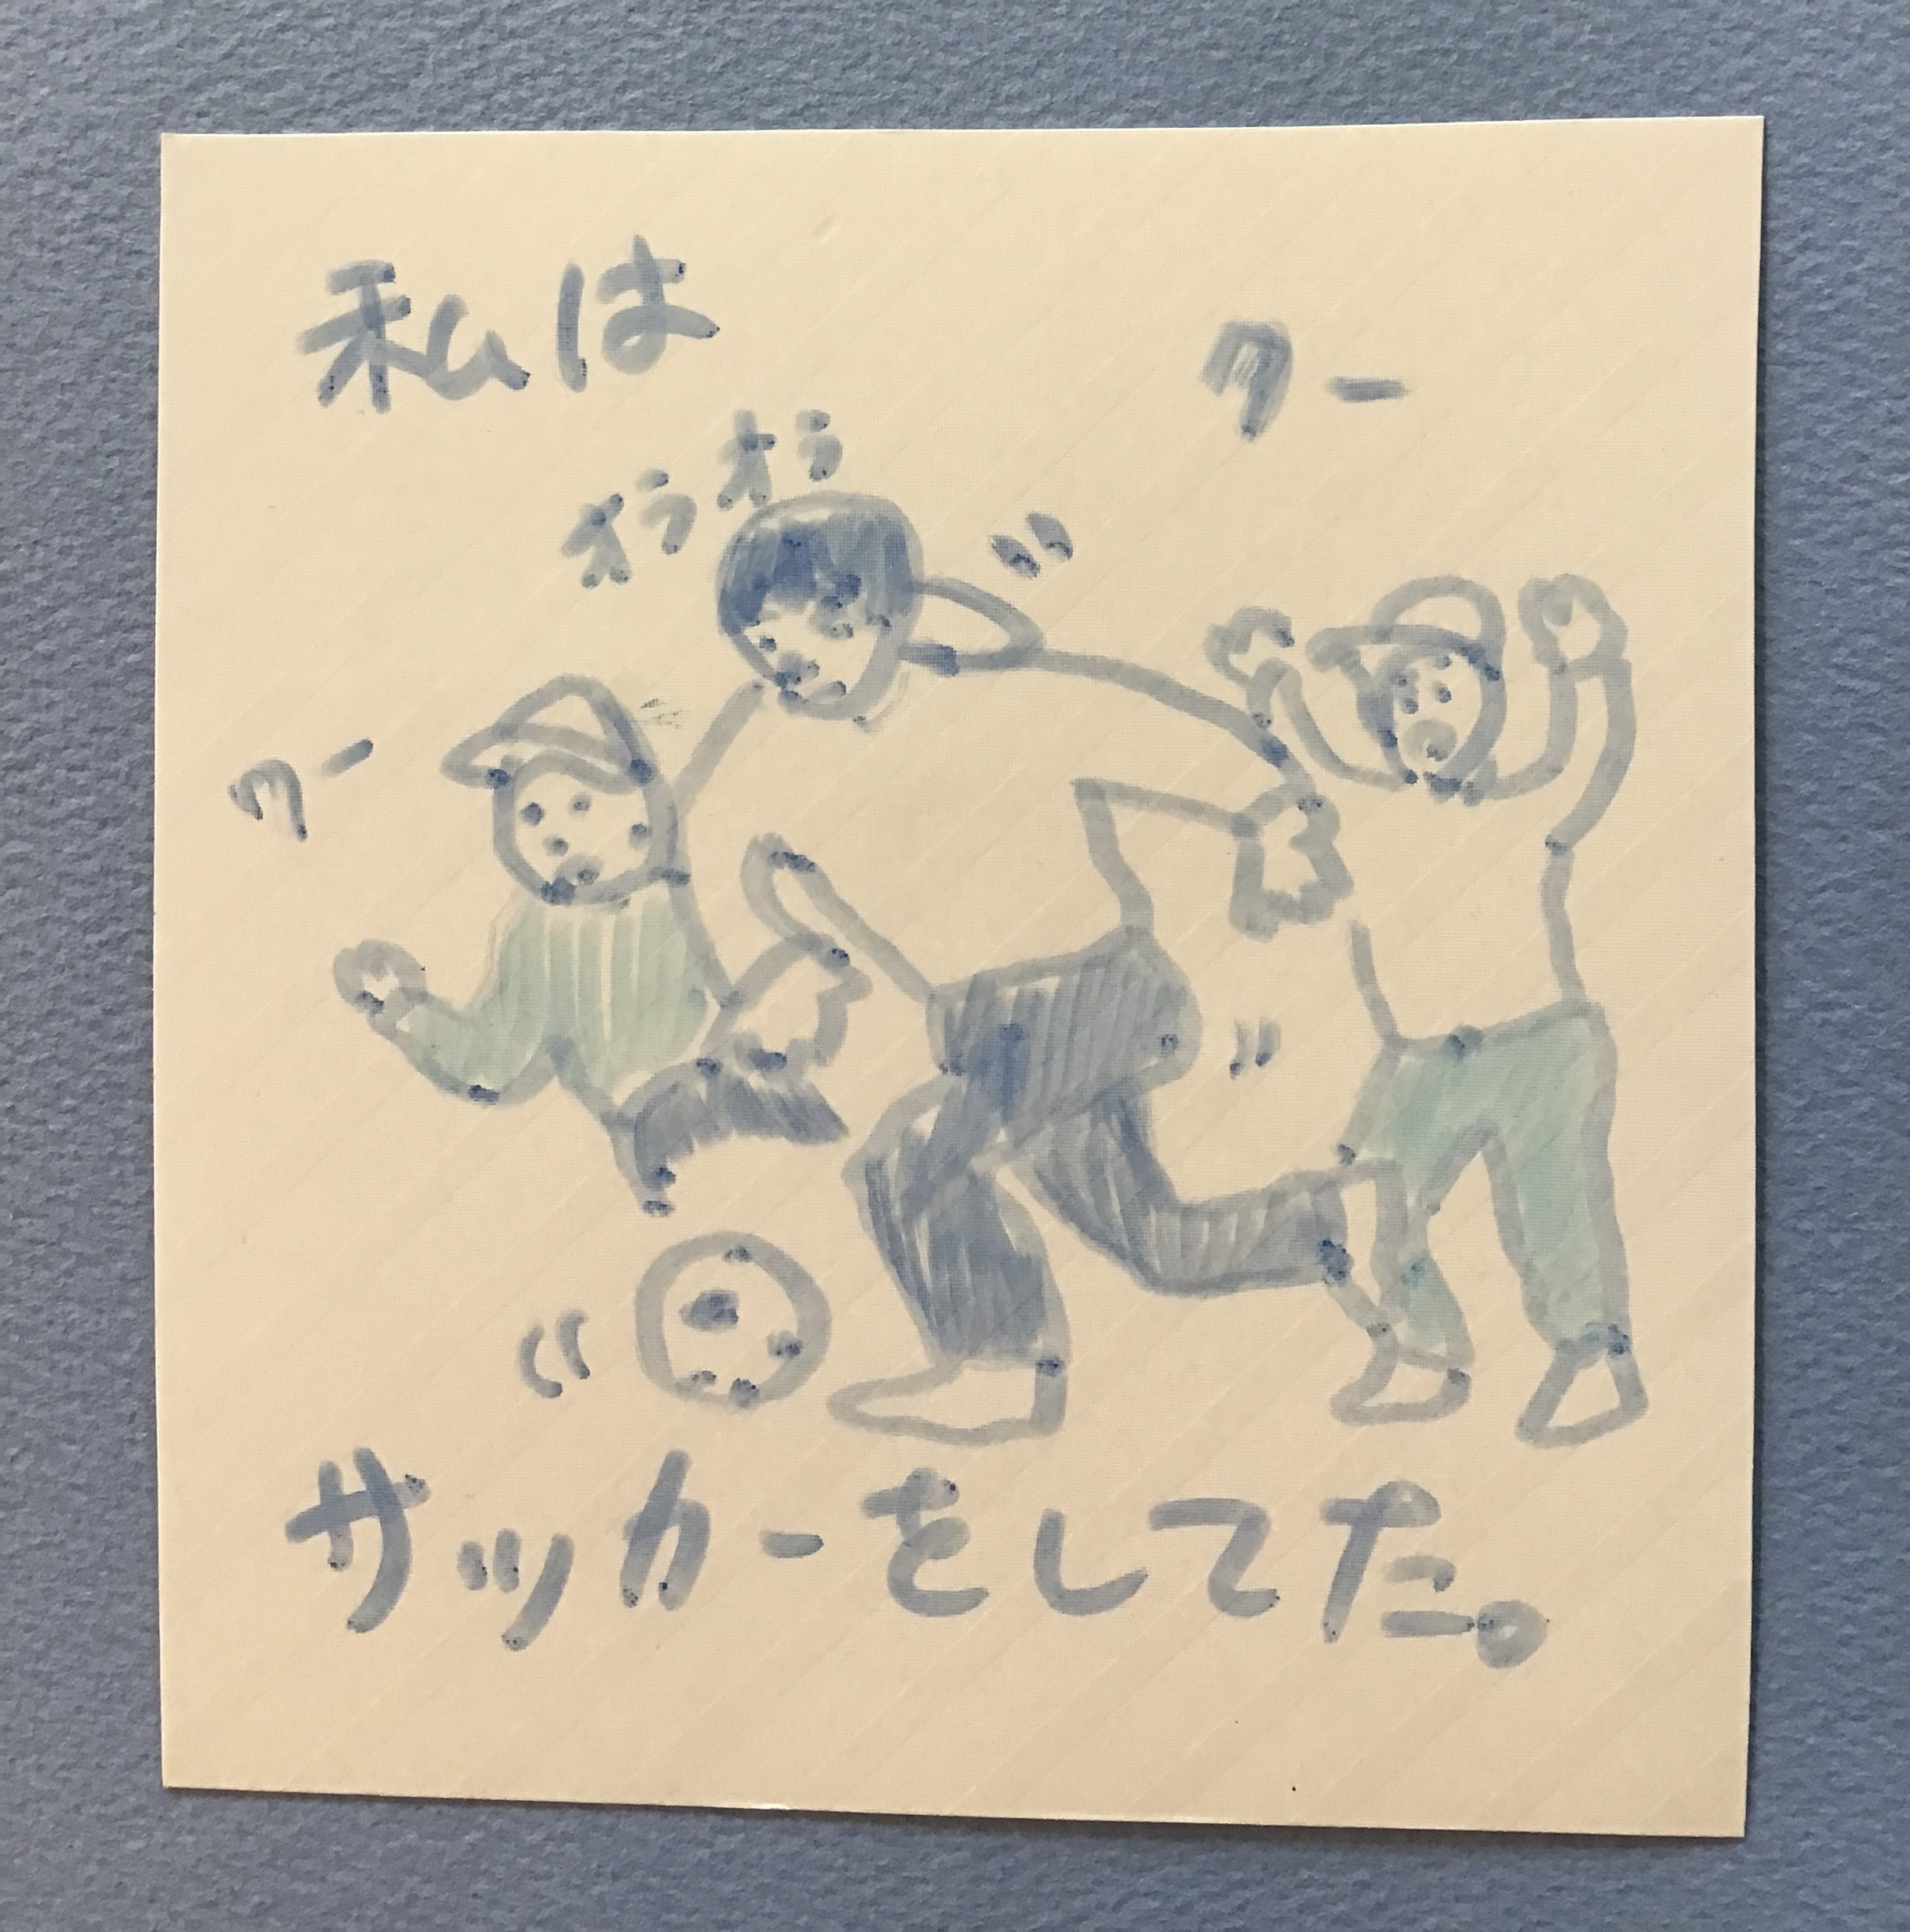 私は
ワー
オラオラ
ワー
サッカーをしてた。